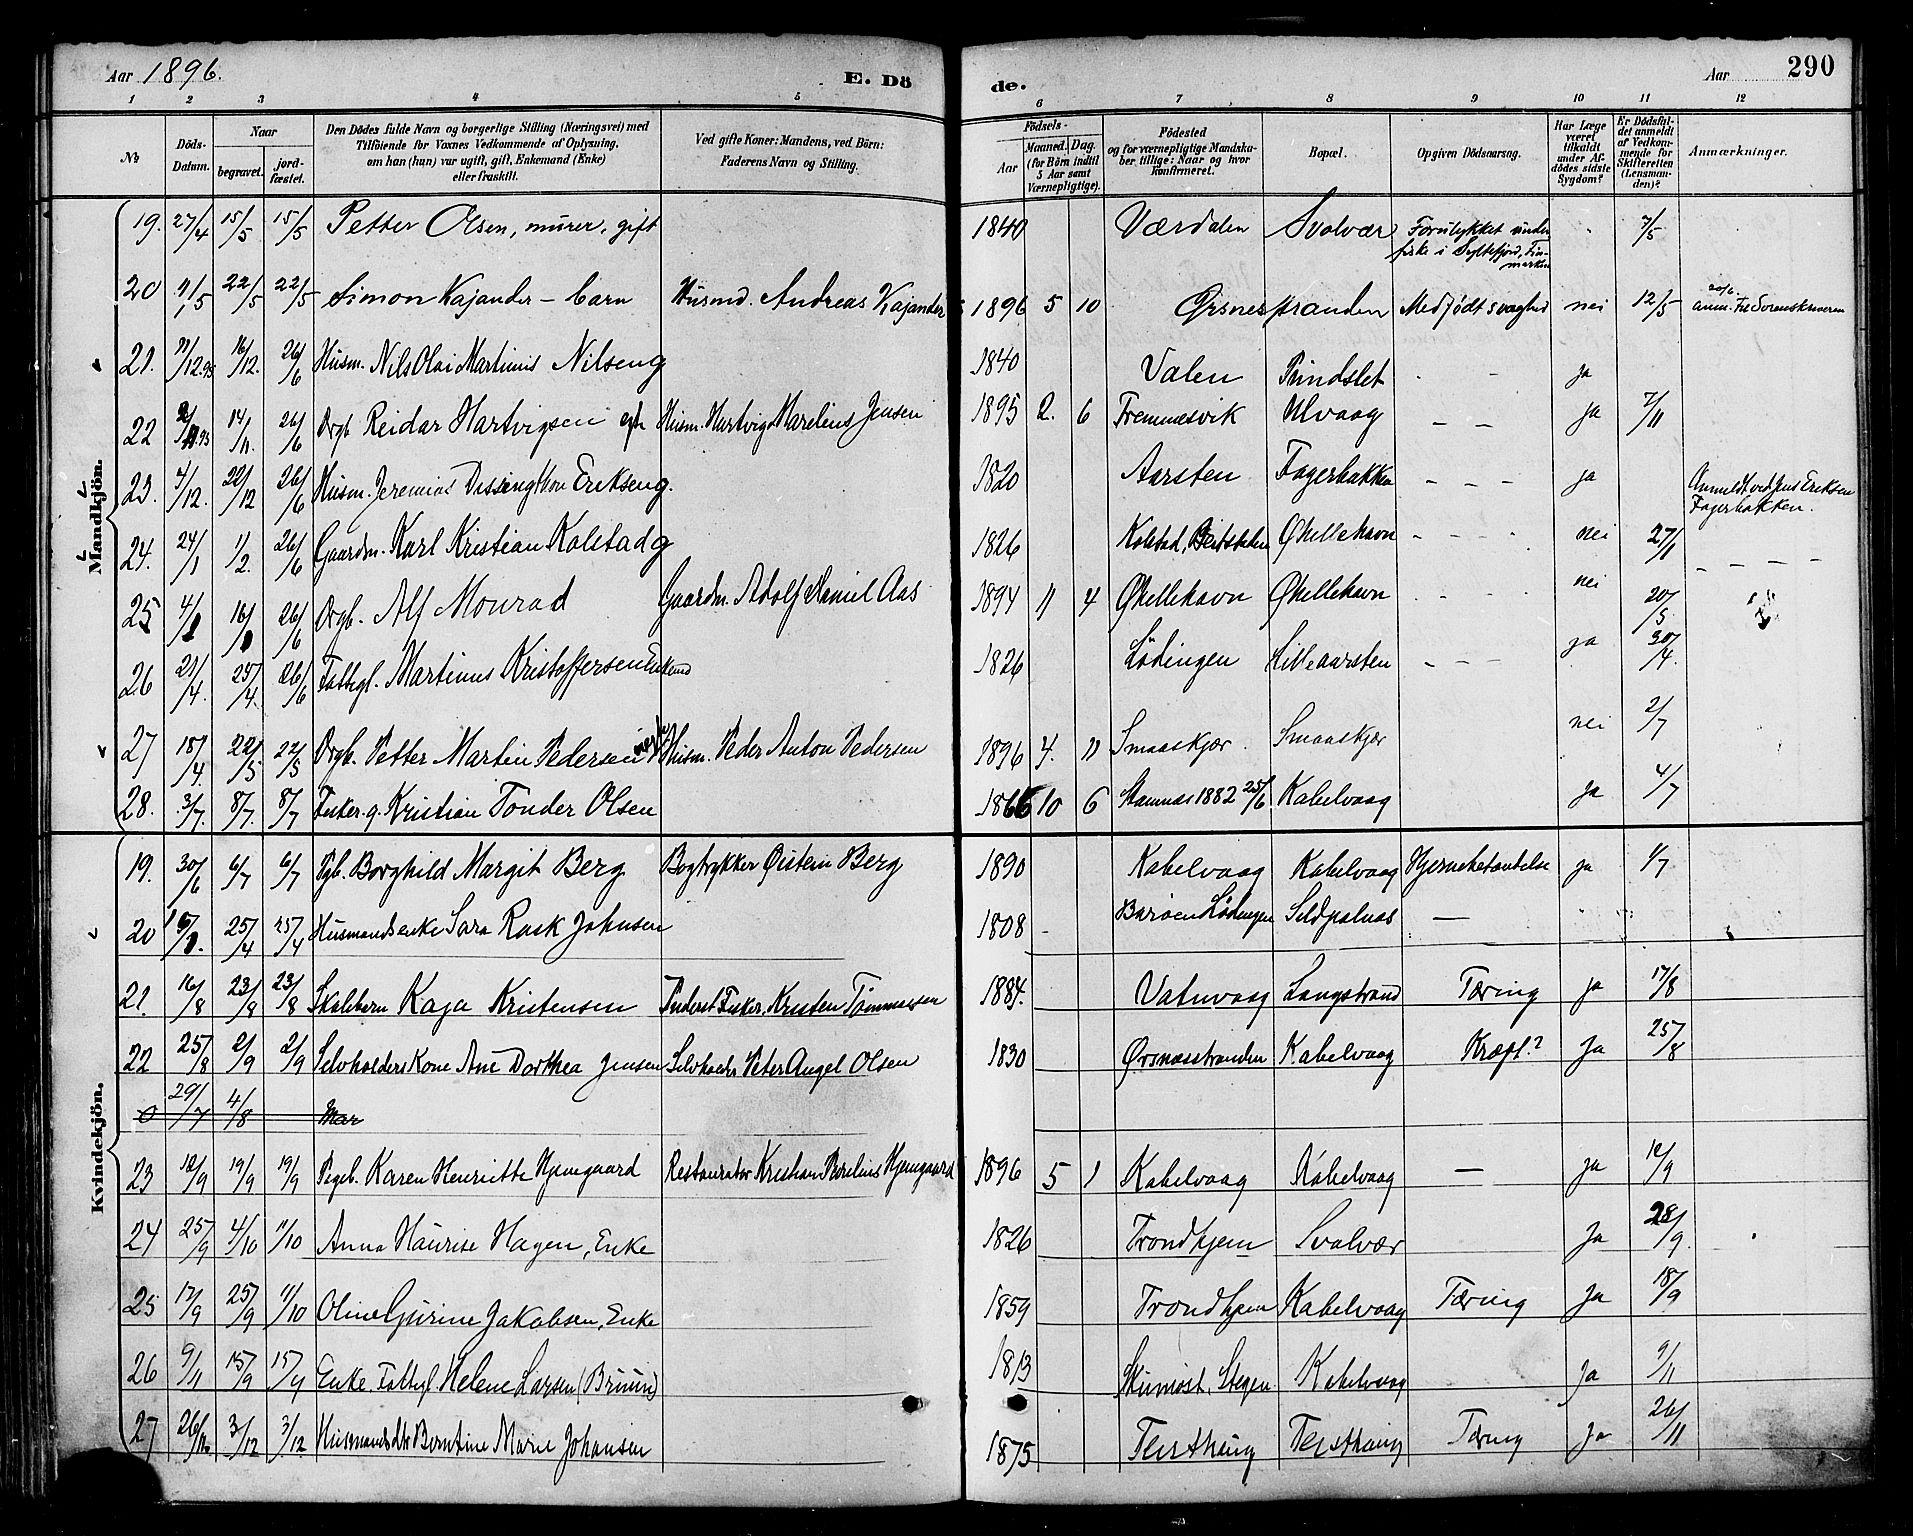 Aar 1896. E. Dö de. Aar 290
1 2 3 4 5 6 7 8 9 10 11 12
No Döds-Datum. Naar begravet. jordfæstet. Den Dödes fulde Navn og borgerlige Stilling (Næringsvei) med Tilföiende for Voxnes Vedkommende af Oplysning, om han (hun) var ugift, gift, Enkemand (Enke) eller fraskilt. Ved gifte Koner: Mandens, ved Börn: Faderens Navn og Stilling. Födsels- Aar Maaned. Dag. (for Börn indtil 5 Aar samt Værnepligtige). Födested og for værnepligtige Mandskaber tillige: Naar og hvor konfirmeret. Bopæl. Opgiven Dödsaarsag. Har Læge været tilkaldt under Afdödes sidste Sygdom? Er Dödsfaldet anmeldt af Vedkommende for Skifteretten (Lensmanden)? Anmærkninger.
Mandkjön.
19. 27/4 15/5 15/5 Petter Olsen, murer, gift 1840 Værdalen Svolvær Forulykket under fiske i Syltefjord, Finmarken 7/5
20 11/5 22/5 22/5 Simon Kajander – barn Husmd. Andreas Kajander 1896 5 10 Ørsnesstranden Medfödt svaghed nei 12/5 20/6 anm. til Sorenskriveren
21. 11/12.95 16/12. 26/6 Husm. Nils Olai Martinus Nilsen g 1840 Valen Prindslet - - ja
22 14/11. 26/6 Drgb Reidar Hartvigsen Husm. Hartvig Marelius Jensen 1895 2. 6 Tremnesvik Ulvaag - - ja 7/11
23. 4/12. 22/12 26/6 Husm. Jeremias Erikseng. 1820 Aarsten Fagerbakken - - - ja Anmeldt ved Jens Eriksen Fagerbakken.
24. 24/1 1/2. 26/6 Gaardm. Karl Kristian Kolstad g 1826 Kolstad, Beitstaden Øhellehavn - - - nei 27/1 - - - -
25 4/1 16/1 26/6 Drgb. Alf Monrad Gaardm. Adolf Daniel Aas 1894 11 4 Øhellehavn Øhellehavn - - - nei 20/5
26 21/4. 25/4. 26/6 Fattigl. Martinus Kristoffersen Enkemd 1826 Lödingen Lilleaarsten - - - ja 30/4.
27 18/4. 22/5 22/5 Drgb. Petter Martin Pedersen Husm. Peder Anton Pedersen 1896 4. 11 Smaaskjær. Smaaskjær nei 2/7
28. 3/7. 8/7. 8/7 Fisker. g. Kristian Tonder Olsen 1866 10 6 Stamnes 1882 25/6 Kabelvaag ja 4/7
Kvindekjön.
19. 30/6 6/7 6/7 Pgb. Borghild Margit Berg Bogtrykker Øistein Berg 1890 Kabelvaag Kabelvaag Hjernebetændelse ja 1/7
20 25/4 25/4 Husmandsenke Sara Rask Johnsen 1808 Baröen Lödingen Sildpolnes —
21. 16/8 23/8 23/8 Skolebarn Kaja Kristensen Inderst Fisker. Kristen Tömmesen 1884. Vatnvaag Langstrand Tæring ja 17/8
22 25/8 2/9 2/9 Selvholders Kone Ane Dorthea Jensen Selvholder Peter Angel Olsen 1830 Ørsnesstranden Kabelvaag Kræft? ja 25/8
0 29/7 4/8 Mar
23 12/9 19/9 19/9 Pigeb. Karen Henriette Hjemgaard Restauratør Kristian Parelius Hjemgaard 1896 5 1 Kabelvaag Kabelvaag — ja 12/9
24 25/9 4/10 11/10 Anna Haurise Hagen, Enke 1826 Trondhjem Svolvær ja 28/9.
25 17/9 25/9 11/10 Oline Gurine Jakobsen, Enke 1859 Trondhjem Kabelvaag Tæring ja 18/9
26 9/11 15/9 15/11 Enke. Fattigl. Helene Larsen (Bruun) 1813 Skumöst, Stegen Kabelvaag ja 9/11
27 26/11 3/12 3/12 Husmandsdtr Berntine Marie Johansen 1875 Teisthaug Teisthaug Tæring ja 26/11